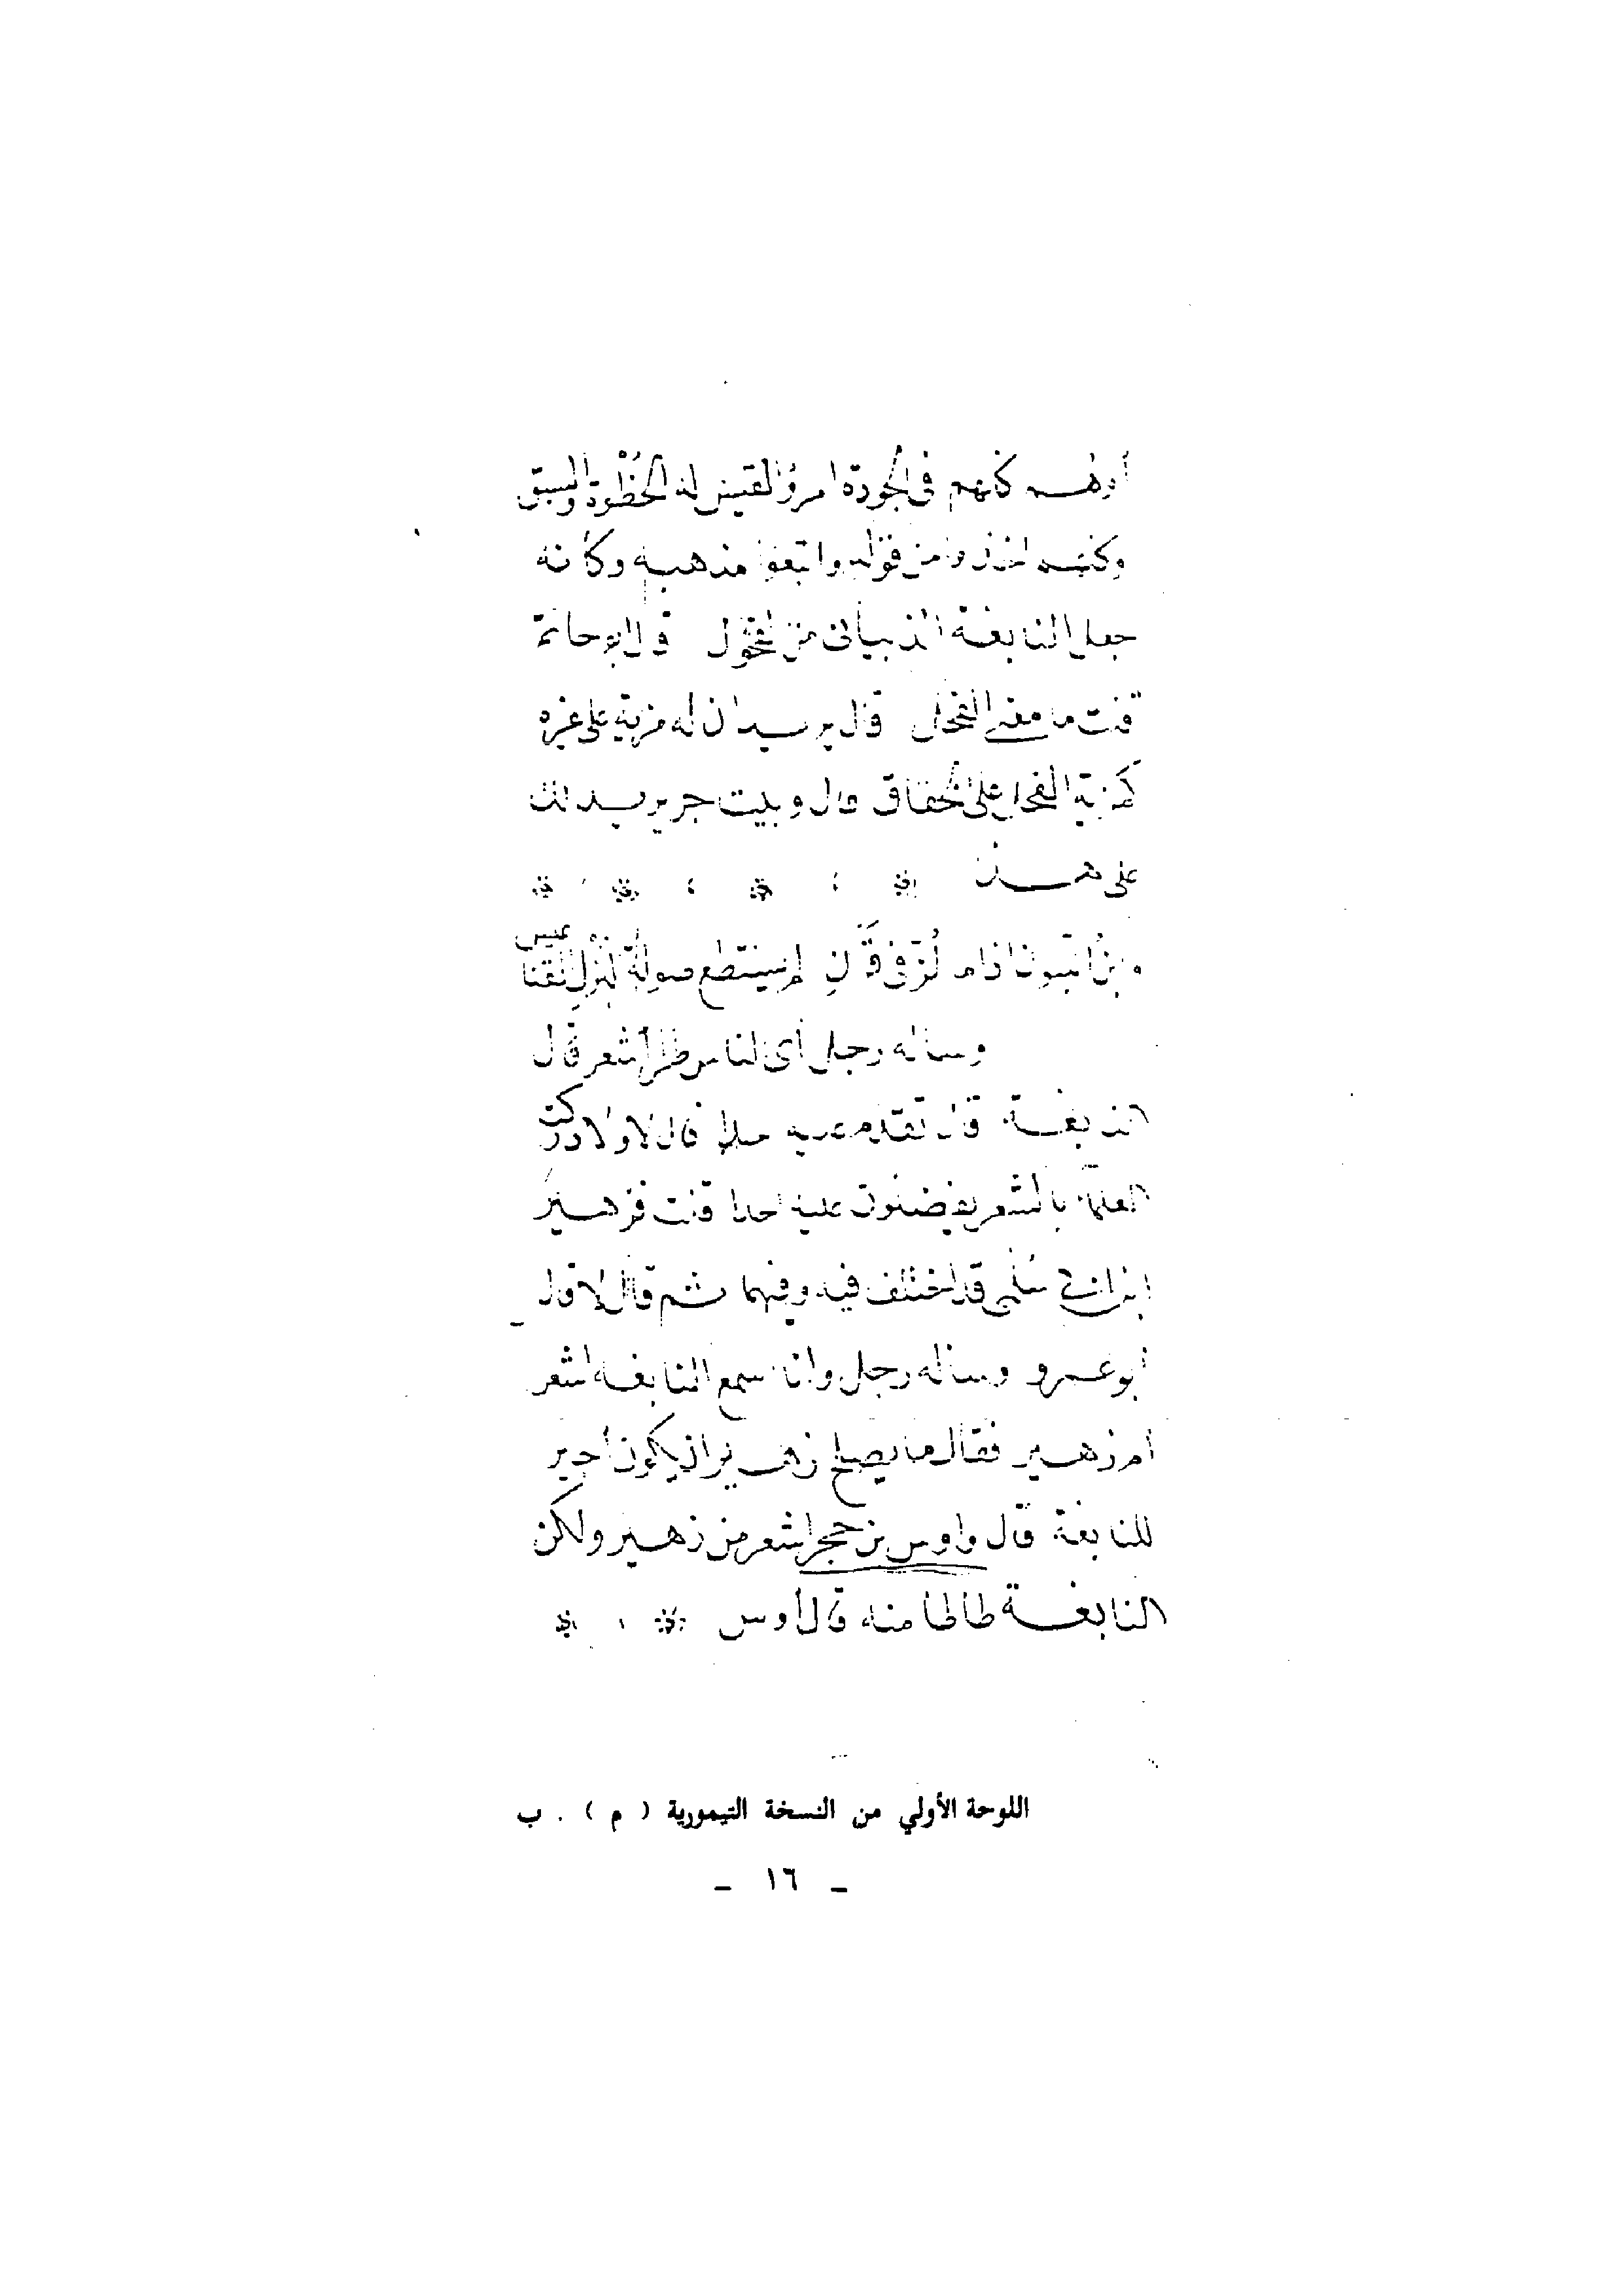 أولهم كلهم في الجودة امرؤ القيس له الحُظْوة والسبق
وكلهم اخذوا من قوله واتبعوا مذهبه وكانه
جعل النابغة الذبياني من الفحول قال ابو حاتم
قلت ما معنى الفحل قال يريد ان له مزية على غيره
كمزية الفحل على الحقاق قال وبيت جرير يدلك
على هذا
وابن اللبون اذا ما لُزّ في قَرَنٍ لم يستطع صولة البُزْلِ القناعيس
وساله رجل أي الناس طرا أشعر قال
النابغة قال تقدم عليه احدا قال لا ولا ادركت
العلماء بالشعر يفضلون عليه احدا قلت فزهير
ابن أبي سُلْمى قد اختلف فيه وفيهما ثم قال لا قال
أبو عمرو وساله رجل وانا اسمع النابغة اشعر
أم زهير فقال ما يصلح زهير ان يكون أجير
للنابغة قال واوس بن حجر اشعر من زهير ولكن
النابغة طاطا منه قال أوس
اللوحة الأولي من النسخة التيمورية ( م ) . ب
- ١٦ -